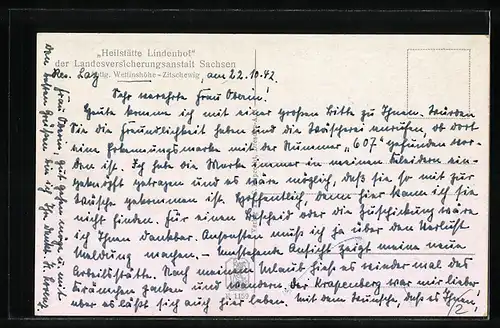 „Heilstätte Lindenhof"
der Landesversicherungsanstalt Sachsen
Abtlg. Wettinshöhe-Zitschewig
Res. Laz., am 22.10.42
Sehr verehrte Frau Oberin!
Heute komme ich mit einer großen Bitte zu Ihnen. Würden
Sie die Freundlichkeit haben und die Wäscherei anrufen, ob dort
eine Erkennungsmarke mit der Nummer „607" gefunden wor-
den ist. Ich habe die Marke immer in meinen Kleidern ein-
geknöpft getragen und es wäre möglich, daß sie so mit zur
Wäsche gekommen ist. Hoffentlich, denn hier kann ich sie
nicht finden. Für einen Bescheid oder die Zuschickung wäre
ich Ihnen dankbar. Ansonsten muß ich ja über den Verlust
Meldung machen. – Umstehende Ansicht zeigt meine neue
Arbeitsstätte. Nach meinem Urlaub hieß es wieder mal das
Bränzchen packen und wandern. Der Krapenberg war mir lieber
aber es läßt sich auch hier leben. Mit dem Wunsche, daß es Ihnen,
/2
Frau Oberin, gut gehen möge u. mit
den besten Grüßen bin ich Ihr
K 1159